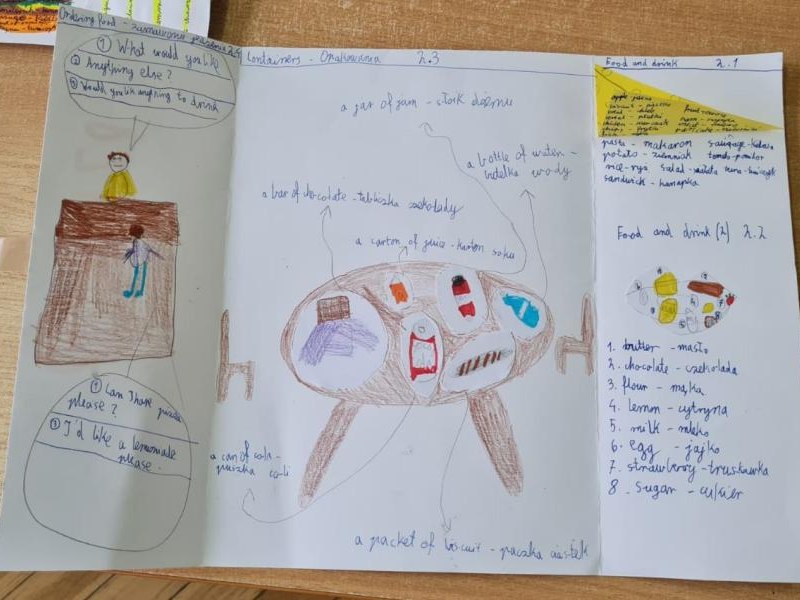 Ordering food - zamawianie jedzenia 2.4
① What would you like
② Anything else?
③ Would you like anything to drink
① Can I have
please?
③ I'd like a lemonade
please.
Containers - Opakowania 2.3
a jar of jam - słoik dżemu
a bottle of water -
butelka wody
a bar of chocolate - tabliczka czekolady
a carton of juice - karton soku
a can of cola -
puszka coli
a packet of biscuit - paczka ciastek
Food and drink 2.1
pasta - makaron sausage - kiełbasa
potato - ziemniak tomato - pomidor
rice - ryż salad - sałata tuna - tuńczyk
sandwich - kanapka
Food and drink (2) 2.2
1. butter - masło
2. chocolate - czekolada
3. flour - mąka
4. lemon - cytryna
5. milk - mleko
6. egg - jajko
7. strawberry - truskawka
8. sugar - cukier